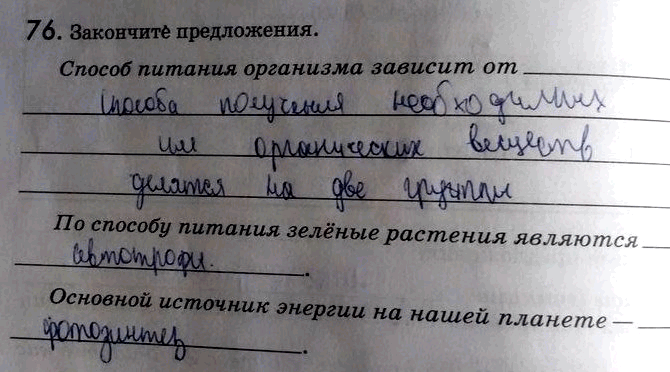 76. Закончите предложения.
Способ питания организма зависит от
способа получения необходимых
им органических веществ
делятся на две группы
По способу питания зелёные растения являются
автотрофы.
Основной источник энергии на нашей планете —
фотозинтез